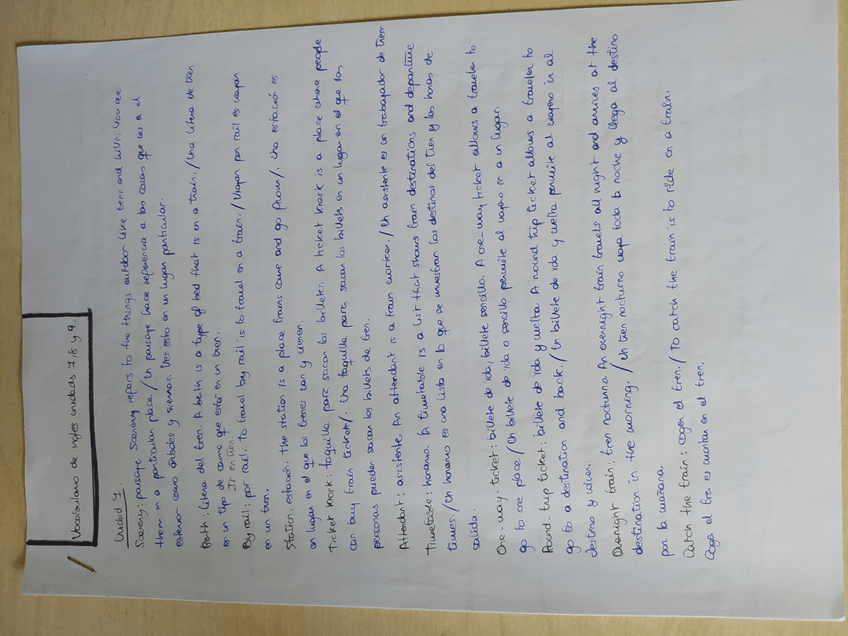 Vocabulario de ingles unidades 7, 8 y 9.
Unidad 7
Scenery: paisage Scenery refers to the things outdoor like trees and hills. You see
them in a particular place. / Un paisage hace referencia a las cosas que vas a el
exterior como árboles y sierras. Ves esto en un lugar particular.
Berth: litera del tren. A berth is a type of bed that is on a train. / Una litera de tren
es un tipo de cama que está en un tren.
Ir en tren.
By rail: por rail. To travel by rail is to travel on a train. / Viajar por rail es viajar
en un tren.
Station: estación: the station is a place trains come and go from /. Una estació es
un lugar en el que los trenes van y vienen.
Ticket kiosk: taquilla para sacar los billetes. A ticket kiosk is a place where people
can buy train tickets /. Una taquilla para sacar los billete es un lugar en el que las
personas pueden sacar los billets de tren.
Attendant: asistente. An attendant is a train worker. / Un asistente es un trabajador de tren
Timetable: horario. A timetable is a list that shows train destinations and departure
times. / Un horario es una lista en lo que se muestran los destinos del tren y las horas de
salida.
One-way-ticket: billete de ida, billete sencillo. A one-way ticket allows a traveler to
go to one place. / Un billete de ida o sencillo permite al viajero ir a un lugar.
Round-trip ticket: billete de ida y vuelta. A round trip ticket allows a traveler to
go to a destination and back. / Un billete de ida y vuelta permite al viajero ir al
destino y volver.
Overnight train: tren nocturno. An overnight train travels all night and arrives at the
destination in the morning. / Un tren nocturno viaja toda la noche y llega al destino
por la mañana.
Catch the train: coger el tren. / To catch the train is to ride on a train.
Coger el tren es montar en el tren.